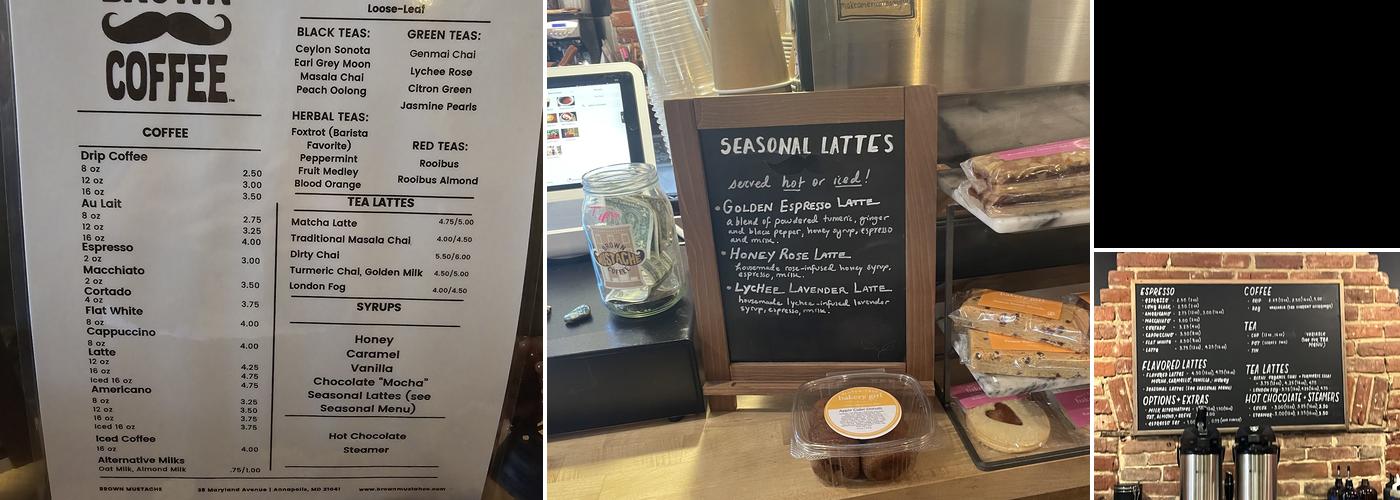 BROWN
COFFEE
COFFEE
Drip Coffee
8 oz 2.50
12 oz 3.00
16 oz 3.50
Au Lait
8 oz 2.75
12 oz 3.25
16 oz 4.00
Espresso
2 oz 3.00
Macchiato
2 oz 3.50
Cortado
4 oz 3.75
Flat White
8 oz 4.00
Cappuccino
8 oz 4.00
Latte
12 oz 4.25
16 oz 4.75
Iced 16 oz 4.75
Americano
8 oz 3.25
12 oz 3.50
16 oz 3.75
Iced 16 oz 3.75
Iced Coffee
16 oz 4.00
Alternative Milks
Oat Milk, Almond Milk .75/1.00
Loose-Leaf
BLACK TEAS:
Ceylon Sonota
Earl Grey Moon
Masala Chai
Peach Oolong
GREEN TEAS:
Genmai Chai
Lychee Rose
Citron Green
Jasmine Pearls
HERBAL TEAS:
Foxtrot (Barista
Favorite)
Peppermint
Fruit Medley
Blood Orange
RED TEAS:
Rooibus
Rooibus Almond
TEA LATTES
Matcha Latte 4.75/5.00
Traditional Masala Chai 4.00/4.50
Dirty Chai 5.50/6.00
Turmeric Chai, Golden Milk 4.50/5.00
London Fog 4.00/4.50
SYRUPS
Honey
Caramel
Vanilla
Chocolate “Mocha”
Seasonal Lattes (see
Seasonal Menu)
Hot Chocolate
Steamer
BROWN MUSTACHE | 35 Maryland Avenue | Annapolis, MD 21401 | www.brownmustache.com
SEASONAL LATTES
served hot or iced!
• GOLDEN ESPRESSO LATTE
a blend of powdered tumeric, ginger
and black pepper, honey syrup, espresso
and milk.
• HONEY ROSE LATTE
housemade rose-infused honey syrup,
espresso, milk.
• LYCHEE LAVENDER LATTE
housmade lychee-infused lavender
syrup, espresso, milk.
Tips
BROWN
MUSTACHE
COFFEE
bakery girl
Apple Cider Donuts
ESPRESSO
• ESPRESSO
• LONG BLACK
• AMERICANO
• MACCHIATO
• CORTADO
• CAPPUCCINO
• FLAT WHITE
• LATTE
FLAVORED LATTES
• FLAVORED LATTES
MOCHA, CARAMEL, VANILLA, HONEY
SEASONAL LATTES (SEE SEASONAL MENU)
OPTIONS + EXTRAS
• MILK ALTERNATIVES
OAT, ALMOND
COFFEE
• DRIP
TEA
• CUP
• POT
VARIABLE
(SEE OUR TEA
MENU)
TEA LATTES
HOT CHOCOLATE + STEAMERS
• COCOA
• STEAMER